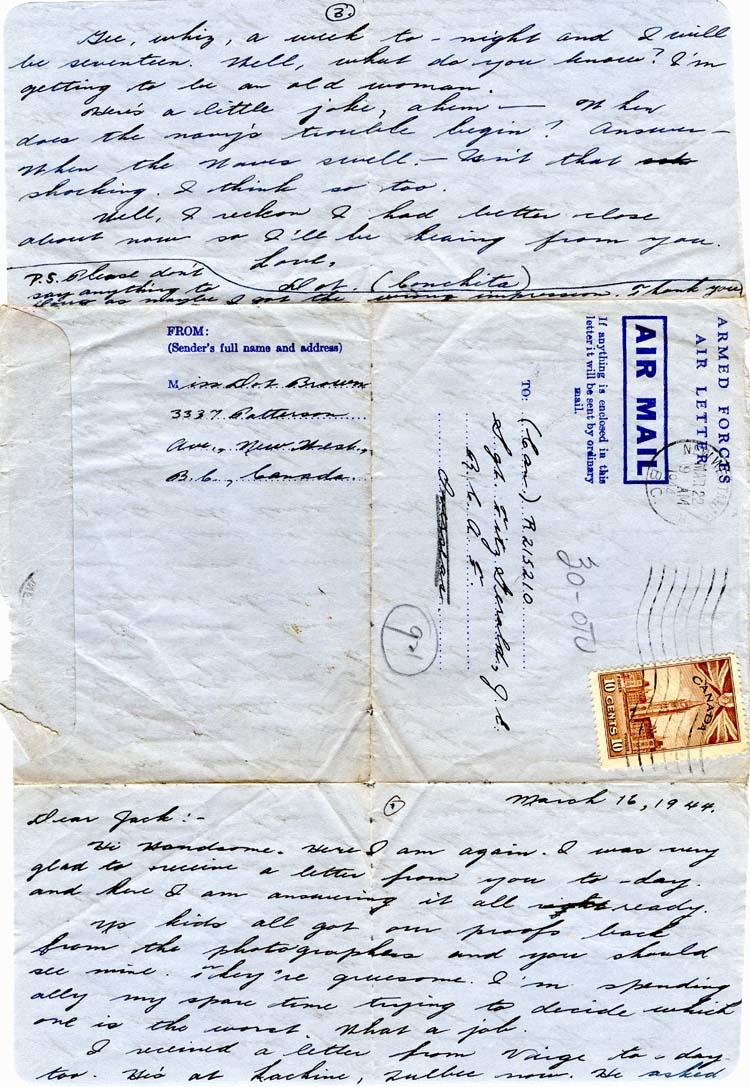 3.
Gee, whiz, a week to-night and I will
be seventeen. Well, what do you know? I'm
getting to be an old woman.
Here's a little joke, ahem — When
does the navy's trouble begin? Answer —
When the Waves swell. — Isn't that
shocking. I think so too.
Well, I reckon I had better close
about now so I'll be hearing from you.
Love,
Dot. (Conchita)
P.S. Please don't
say anything to
as maybe I got the wrong impression. Thank you
FROM:
(Sender's full name and address)
Miss Dot Brown
3337 Patterson
Ave., New West.,
B.C., Canada.
ARMED FORCES
AIR LETTER
AIR MAIL
If anything is enclosed in this
letter it will be sent by ordinary
mail.
TO:
(Can.) R215210
Sgt. Fitz Gerald, J.C.
R.C.A.F.
Overseas
30-OTU
B.C.
9 AM
CANADA
10 CENTS 10
1
March 16, 1944.
Dear Jack:-
Hi Handsome. Here I am again. I was very
glad to receive a letter from you to-day.
and here I am answering it all ready.
Us kids all got our proofs back
from the photographers and you should
see mine. They're gruesome. I'm spending
ally my spare time trying to decide which
one is the worst. What a job.
I received a letter from Virge to-day
too. He's at Lachine, Quebec now. He asked